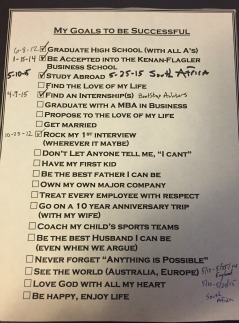 MY GOALS TO BE SUCCESSFUL
6-8-12 GRADUATE HIGH SCHOOL (WITH ALL A'S)
1-15-14 BE ACCEPTED INTO THE KENAN-FLAGLER
BUSINESS SCHOOL
STUDY ABROAD 5-25-15 South Africa
FIND THE LOVE OF MY LIFE
4-9-15 FIND AN INTERNSHIP(S)
GRADUATE WITH A MBA IN BUSINESS
PROPOSE TO THE LOVE OF MY LIFE
GET MARRIED
10-23-12 ROCK MY 1ST INTERVIEW
(WHEREVER IT MAYBE)
DON'T LET ANYONE TELL ME, "I CANT"
HAVE MY FIRST KID
BE THE BEST FATHER I CAN BE
OWN MY OWN MAJOR COMPANY
TREAT EVERY EMPLOYEE WITH RESPECT
GO ON A 10 YEAR ANNIVERSARY TRIP
(WITH MY WIFE)
COACH MY CHILD'S SPORTS TEAMS
BE THE BEST HUSBAND I CAN BE
(EVEN WHEN WE ARGUE)
NEVER FORGET "ANYTHING IS POSSIBLE"
SEE THE WORLD (AUSTRALIA, EUROPE)
England
LOVE GOD WITH ALL MY HEART
South
Africa
BE HAPPY, ENJOY LIFE